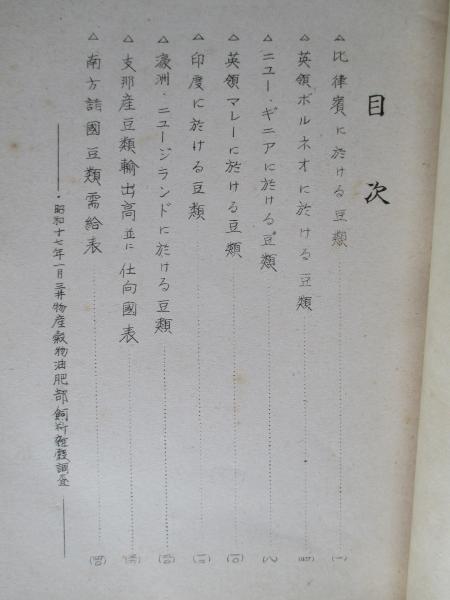 目次
△比律賓に於ける豆類 (一)
△英領ボルネオに於ける豆類 (四)
△ニュー・ギニアに於ける豆類 (八)
△英領マレーに於ける豆類 (一〇)
△印度に於ける豆類
△濠洲・ニュージランドに於ける豆類
△支那産豆類輸出高並に仕向國表
△南方諸國豆類需給表
昭和十七年一月三井物産穀物油肥部飼料雜穀調査